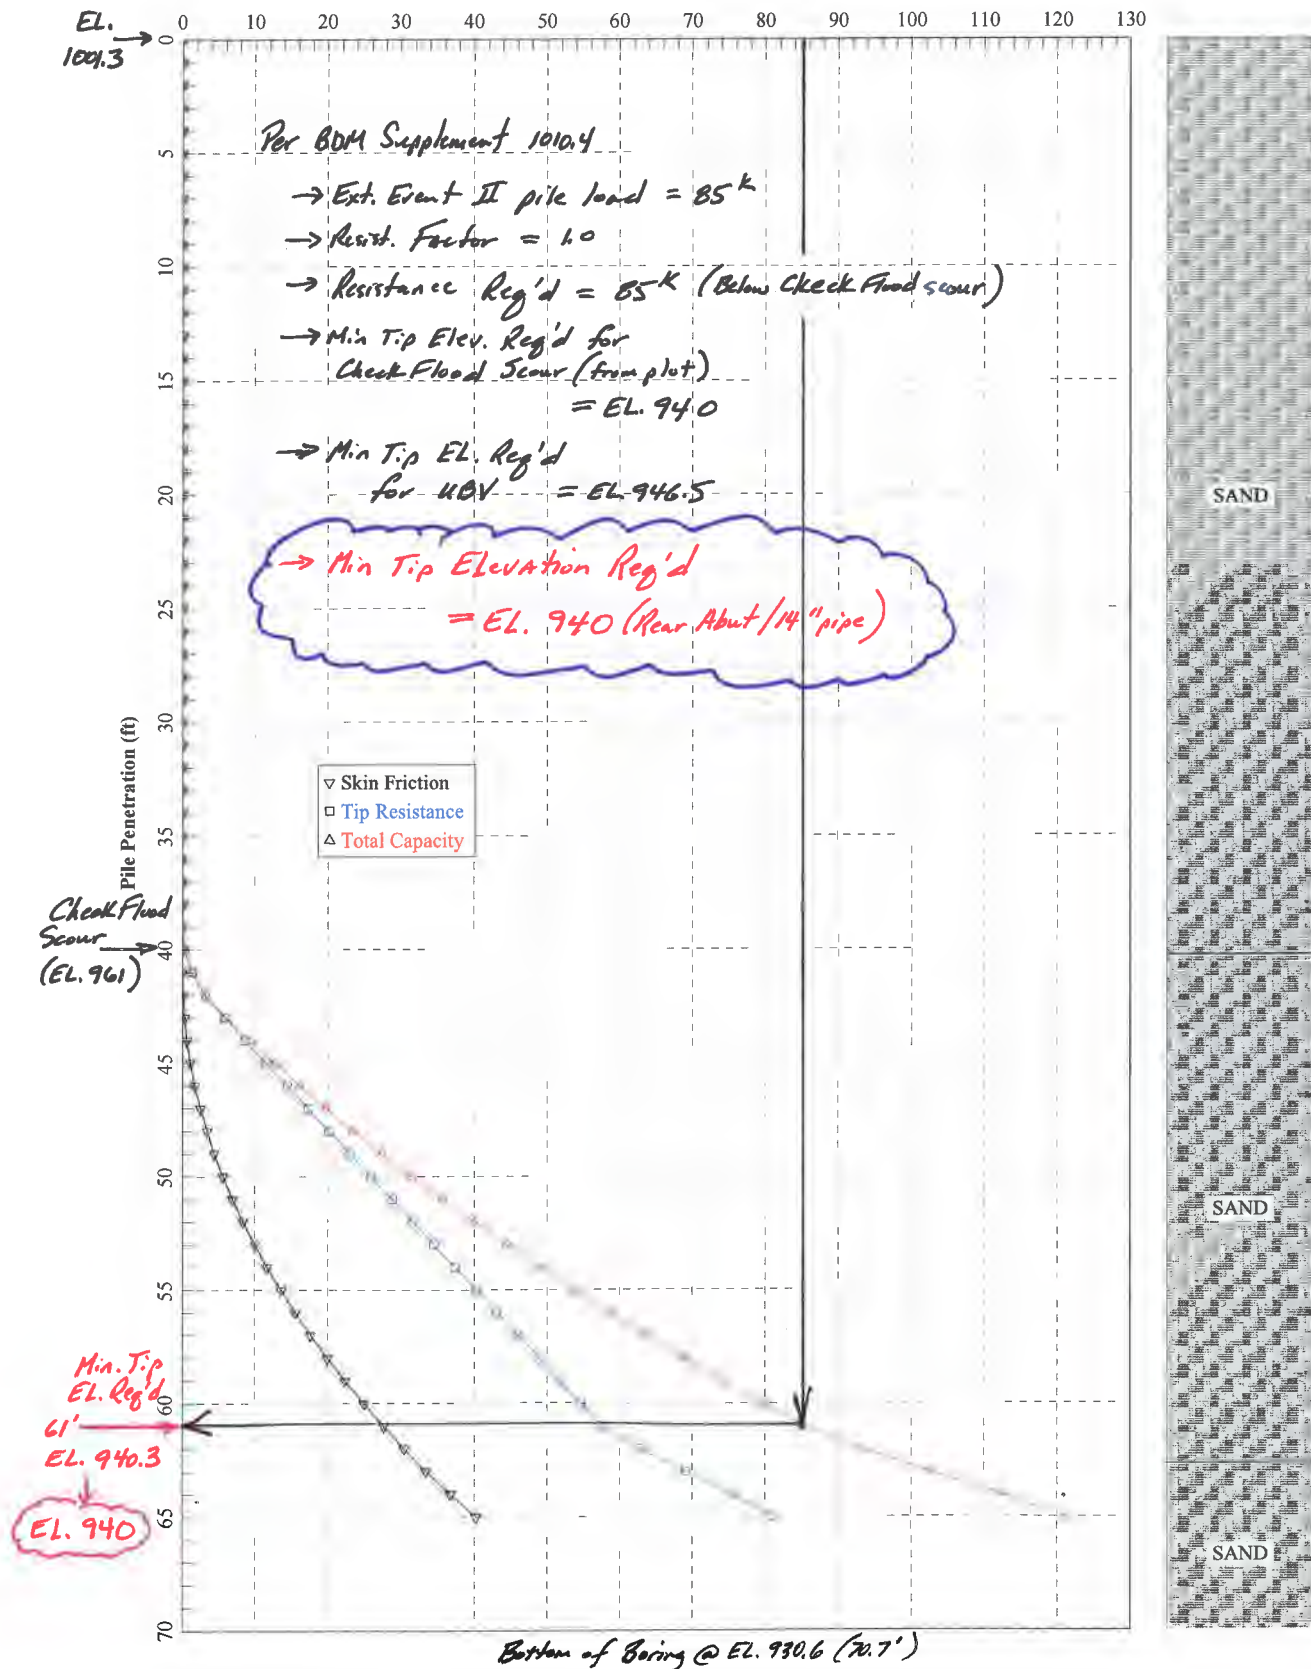 EL.
1001.3
0 10 20 30 40 50 60 70 80 90 100 110 120 130
0
5
10
15
20
25
30
35
40
45
50
55
60
65
70
Pile Penetration (ft)
Per BDM Supplement 1010.4
→ Ext. Event II pile load = 85k
→ Resist. Factor = 1.0
→ Resistance Req'd = 85K (Below Check Flood scour)
→ Min Tip Elev. Req'd for
Check Flood Scour (from plot)
= EL. 940
→ Min Tip EL. Req'd
for UBV = EL. 946.5
→ Min Tip Elevation Req'd
= EL. 940 (Rear Abut/14" pipe)
▽ Skin Friction
□ Tip Resistance
△ Total Capacity
Check Flood
Scour
(EL. 961)
Min. Tip
EL. Req'd
61'
EL. 940.3
EL. 940
SAND
SAND
SAND
Bottom of Boring @ EL. 930.6 (70.7')